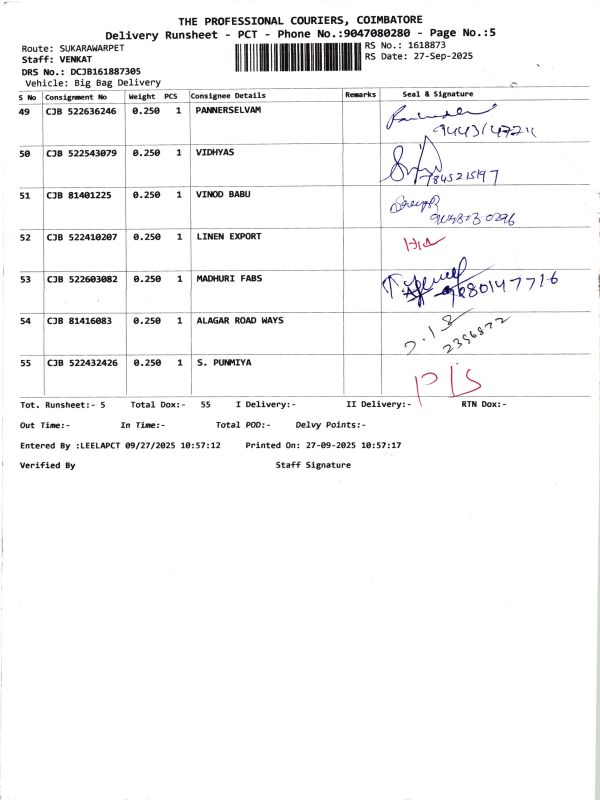 THE PROFESSIONAL COURIERS, COIMBATORE
Delivery Runsheet - PCT - Phone No.:9047080280 - Page No.:5
Route: SUKARAWARPET
RS No.: 1618873
Staff: VENKAT
RS Date: 27-Sep-2025
DRS No.: DCJB161887305
Vehicle: Big Bag Delivery
S No Consignment No Weight PCS Consignee Details Remarks Seal & Signature
49 CJB 522636246 0.250 1 PANNERSELVAM
50 CJB 522543079 0.250 1 VIDHYAS
7845215197
51 CJB 81401225 0.250 1 VINOD BABU
52 CJB 522410207 0.250 1 LINEN EXPORT
53 CJB 522603082 0.250 1 MADHURI FABS
9880147716
54 CJB 81416083 0.250 1 ALAGAR ROAD WAYS
2396822
55 CJB 522432426 0.250 1 S. PUNMIYA
Tot. Runsheet:- 5 Total Dox:- 55 I Delivery:- II Delivery:- RTN Dox:-
Out Time:- In Time:- Total POD:- Delvy Points:-
Entered By :LEELAPCT 09/27/2025 10:57:12 Printed On: 27-09-2025 10:57:17
Verified By Staff Signature